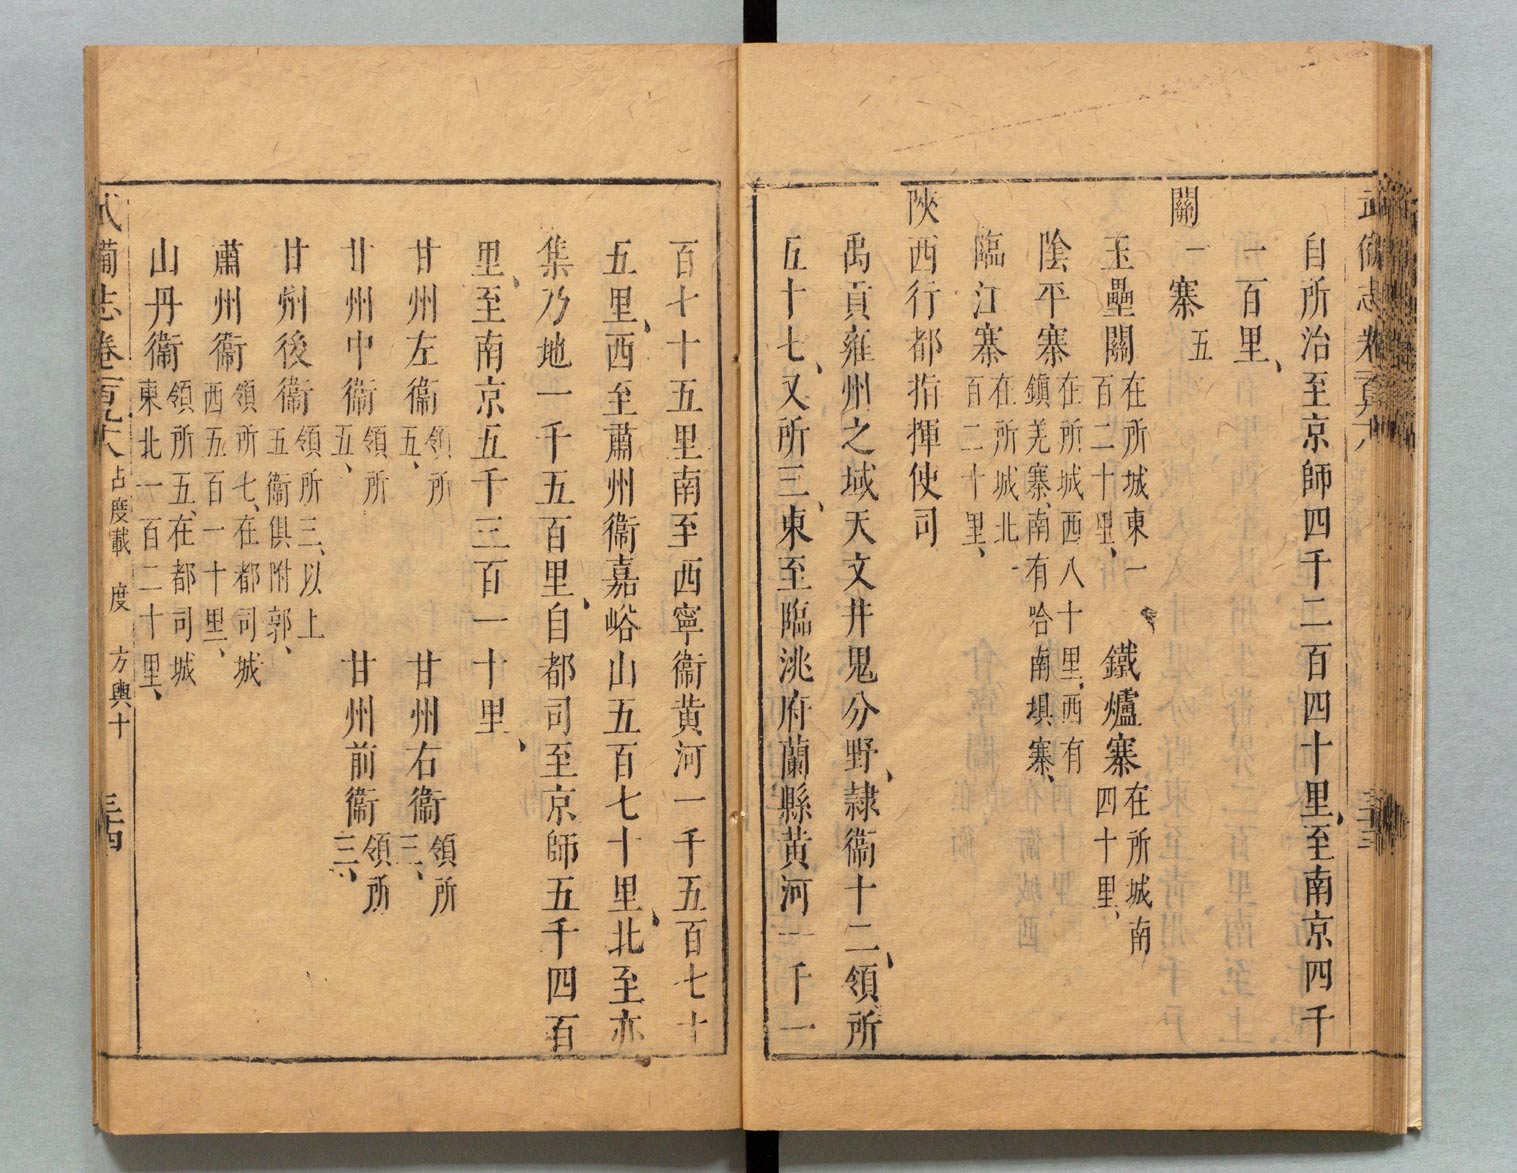 自所治至京師四千二百四十里、至南京四千
一百里、
關一寨五
玉壘關在所城東一百二十里、鐵爐寨在所城南四十里、
陰平寨在所城西八十里、西有鎮羌寨、南有哈南垻寨、
臨江寨在所城北一百二十里、
陝西行都指揮使司
禹貢雍州之域天文井鬼分野、隷衞十二、領所
五十七、又所三、東至臨洮府蘭縣黄河一千一
百七十五里南至西寧衞黄河一千五百七十
五里、西至肅州衞嘉峪山五百七十里、北至亦
集乃地一千五百里、自都司至京師五千四百
里、至南京五千三百一十里、
甘州左衞領所五、甘州右衞領所三、
甘州中衞領所五、甘州前衞領所三、
甘州後衞領所三、以上五衞俱附郭、
肅州衞領所七、在都司城西五百一十里、
山丹衞領所五、在都司城東北一百二十里、
武備志卷 占度載 度 方輿十 三十四